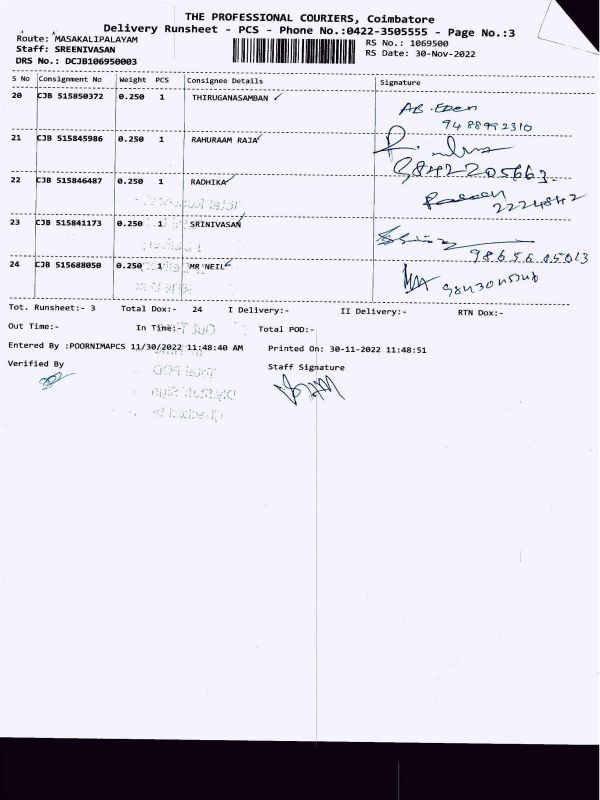 THE PROFESSIONAL COURIERS, Coimbatore
Delivery Runsheet - PCS - Phone No.:0422-3505555 - Page No.:3
Route: MASAKALIPALAYAM
RS No.: 1069500
Staff: SREENIVASAN
RS Date: 30-Nov-2022
DRS No.: DCJB106950003
S No Consignment No Weight PCS Consignee Details Signature
20 CJB 515850372 0.250 1 THIRUGANASAMBAN
9488992310
21 CJB 515845986 0.250 1 RAHURAAM RAJA
9842205663
22 CJB 515846487 0.250 1 RADHIKA
2224842
23 CJB 515841173 0.250 1 SRINIVASAN
9865605013
24 CJB 515688050 0.250 1 MR NEIL
Tot. Runsheet:- 3 Total Dox:- 24 I Delivery:- II Delivery:- RTN Dox:-
Out Time:- In Time:- Total POD:-
Entered By :POORNIMAPCS 11/30/2022 11:48:40 AM Printed On: 30-11-2022 11:48:51
Verified By Staff Signature